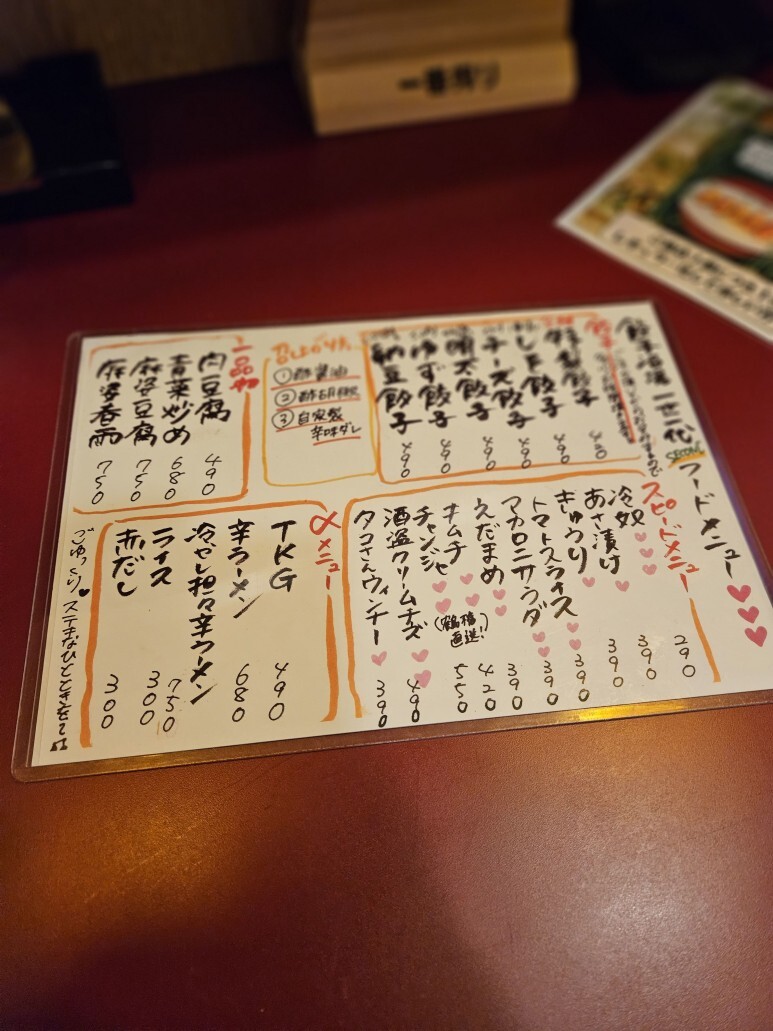 一番搾り
フードメニュー
餃子
チーズ餃子 490
明太餃子 490
ゆず餃子 490
納豆餃子 490
召し上がり方
①酢醤油
②酢胡椒
③自家製
辛味ダレ
一品物
肉豆腐 490
青菜炒め 680
麻婆豆腐 750
麻婆春雨 750
スピードメニュー
冷奴 290
あさ漬け 390
きゅうり 390
トマトスライス 390
マカロニサラダ 390
えだまめ 390
キムチ 420
チャンジャ 550
(鶴橋
直送!)
酒盗クリームチーズ 490
タコさんウィンナー 390
〆メニュー
TKG 490
辛ラーメン 680
冷やし担々辛ラーメン 750
ライス 300
赤だし 300
ごゆっくりステキなひとときを